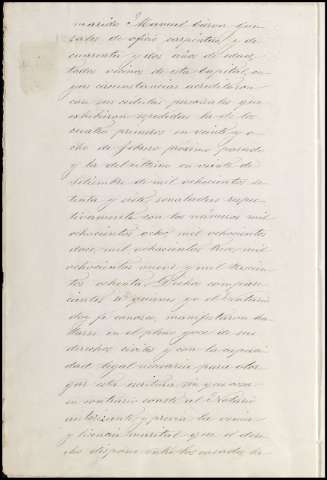 marido Manuel Cáron Gon-
zales de oficio carpintero y de
cuarenta y dos años de edad,
todos vecinos de esta Capital, cu-
yas circunstancias acreditaron
con sus cédulas personales que
exhibieron espedidas la de los
cuatro primeros en veinte y o-
cho de febrero próximo pasado
y la del último en veinte de
Setiembre de mil ochocientos se-
tenta y siete, señaladas respec-
tivamente con los números mil
ochocientos ocho, mil ochocientos
doce, mil ochocientos tres, mil
ochocientos nueve y mil trescien-
tos ochenta. Dichos compare-
cientes á quienes yo el Notario
doy fé conozco, manifestaron ha-
llarse en el pleno goce de sus
derechos civiles y con la capaci-
dad legal necesaria para otor-
gar esta escritura sin que cosa
en contrario conste al Notario
autorizante y previa la venia
y licencia marital que el dere-
cho dispone entre los casados he-